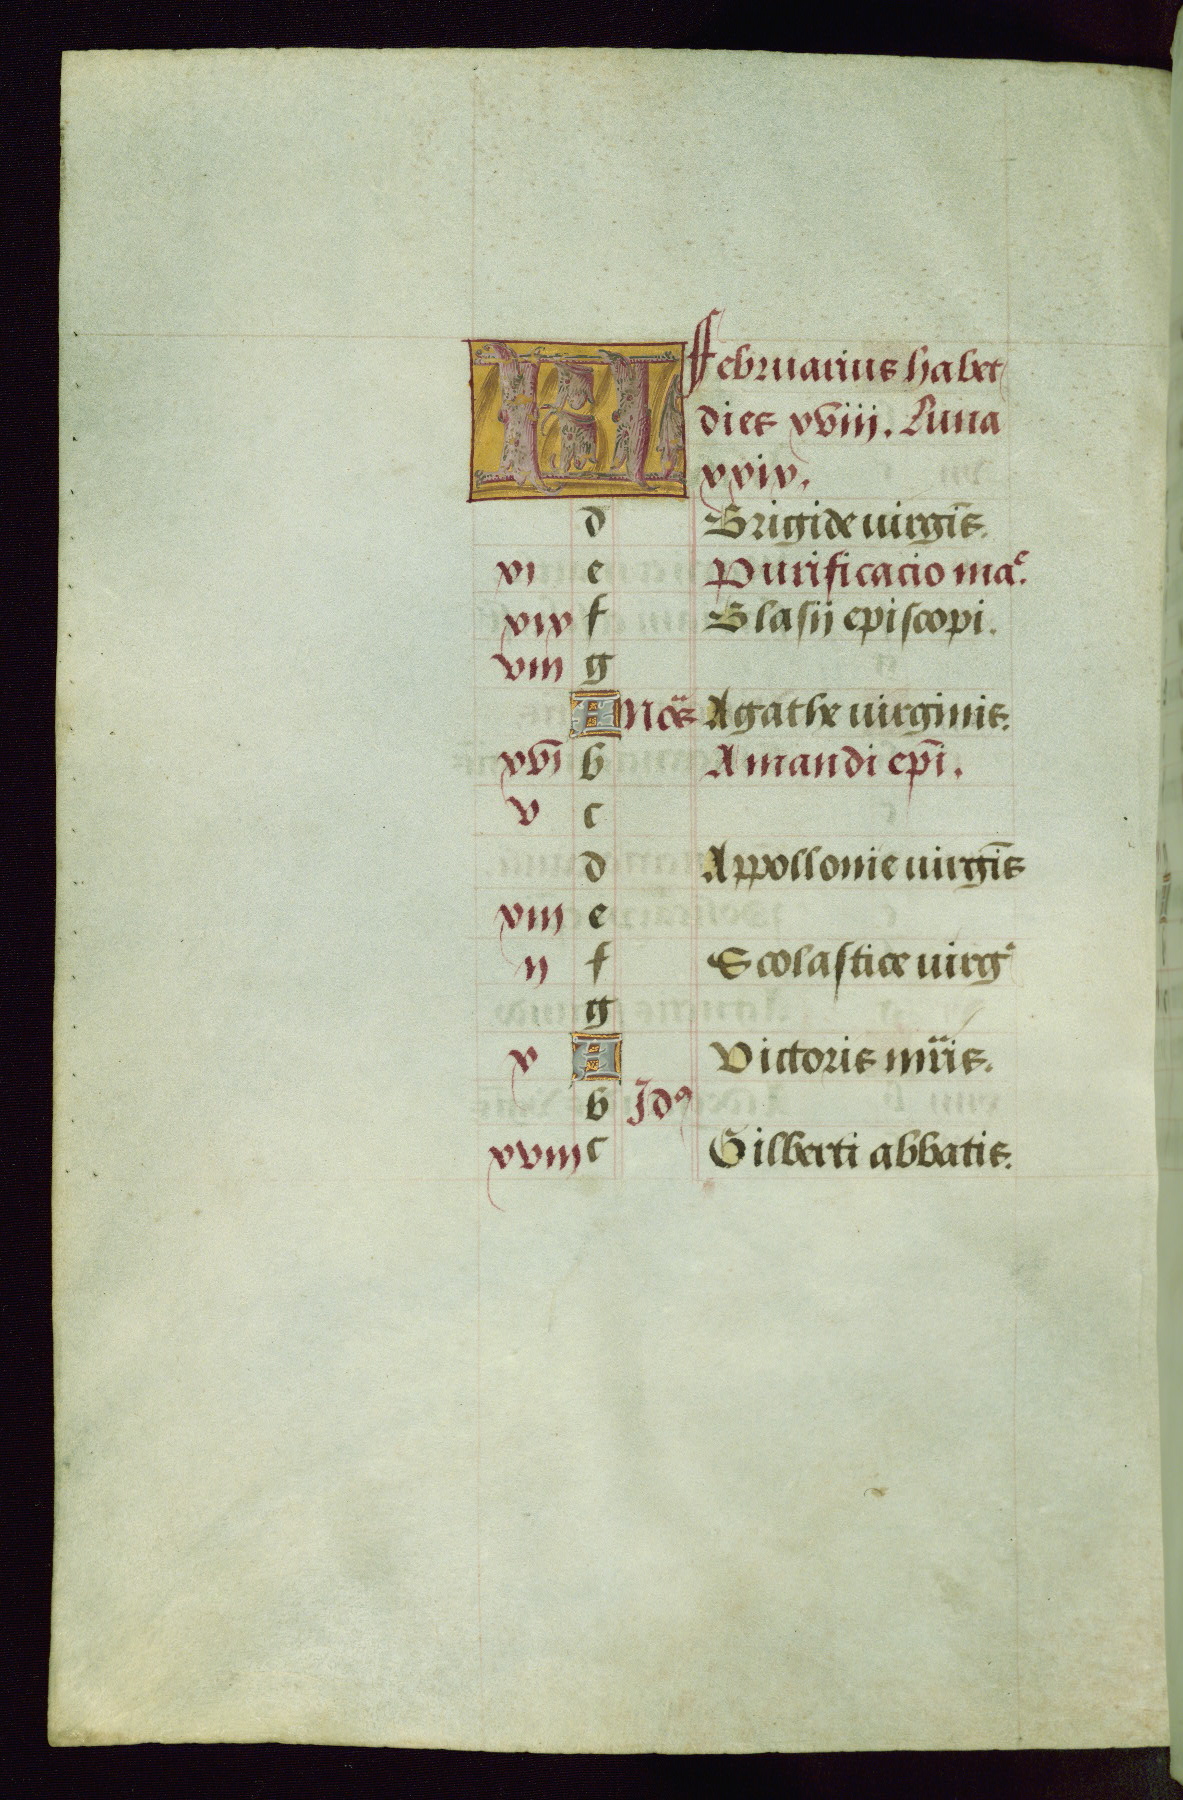 KL Februarius habet
dies xxviij. Luna
xxix.
d Brigide uirgis.
xi e Purificacio mae.
xix f Blasij episcopi.
viii g
A Nōs Agathe uirginis.
xvi b Amandi epi.
v c
d Appollonie uirgis
xiii e
ii f Scolastice uirg
g
x A Victoris mris.
b Jdꝰ
xviii c Gilberti abbatis.